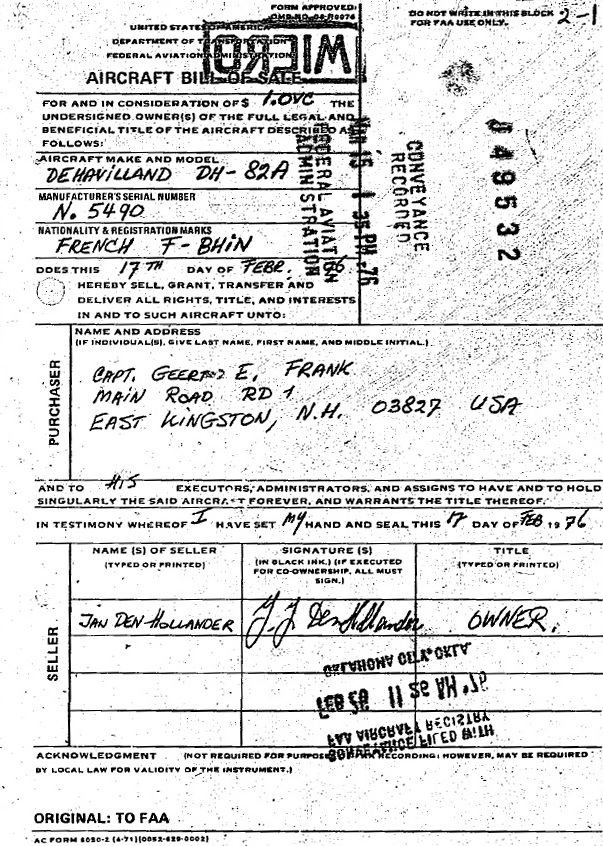 FORM APPROVED:
OMB NO. 04-R0076
UNITED STATES OF AMERICA
DEPARTMENT OF TRANSPORTATION
FEDERAL AVIATION ADMINISTRATION
MICRO
AIRCRAFT BILL OF SALE
DO NOT WRITE IN THIS BLOCK
FOR FAA USE ONLY.
2-1
FOR AND IN CONSIDERATION OF $ 1.OVC THE
UNDERSIGNED OWNER(S) OF THE FULL LEGAL AND
BENEFICIAL TITLE OF THE AIRCRAFT DESCRIBED AS
FOLLOWS:
AIRCRAFT MAKE AND MODEL
DEHAVILLAND DH-82A
MANUFACTURER'S SERIAL NUMBER
N. 5490
NATIONALITY & REGISTRATION MARKS
FRENCH F-BHIN
DOES THIS 17TH DAY OF FEBR. 76
HEREBY SELL, GRANT, TRANSFER AND
DELIVER ALL RIGHTS, TITLE, AND INTERESTS
IN AND TO SUCH AIRCRAFT UNTO:
FEDERAL AVIATION
ADMINISTRATION
PM '76
CONVEYANCE
RECORDED
049532
PURCHASER
NAME AND ADDRESS
(IF INDIVIDUAL(S), GIVE LAST NAME, FIRST NAME, AND MIDDLE INITIAL.)
CAPT. E. FRANK
MAIN ROAD RD 1
EAST KINGSTON, N.H. 03827 USA
AND TO HIS EXECUTORS, ADMINISTRATORS, AND ASSIGNS TO HAVE AND TO HOLD
SINGULARLY THE SAID AIRCRAFT FOREVER, AND WARRANTS THE TITLE THEREOF.
IN TESTIMONY WHEREOF I HAVE SET MY HAND AND SEAL THIS 17 DAY OF FEB 1976
SELLER
NAME (S) OF SELLER
(TYPED OR PRINTED)
SIGNATURE (S)
(IN BLACK INK.) (IF EXECUTED
FOR CO-OWNERSHIP, ALL MUST
SIGN.)
TITLE
(TYPED OR PRINTED)
JAN DEN HOLLANDER
J. J. Den Hollander
OWNER.
OKLAHOMA CITY, OKLA.
FEB 26 11 26 AM '76
FAA AIRCRAFT REGISTRY
CONVEYANCE FILED WITH
ACKNOWLEDGMENT (NOT REQUIRED FOR PURPOSES OF FAA RECORDING: HOWEVER, MAY BE REQUIRED
BY LOCAL LAW FOR VALIDITY OF THE INSTRUMENT.)
ORIGINAL: TO FAA
AC FORM 8050-2 (4-71)(0052-629-0002)